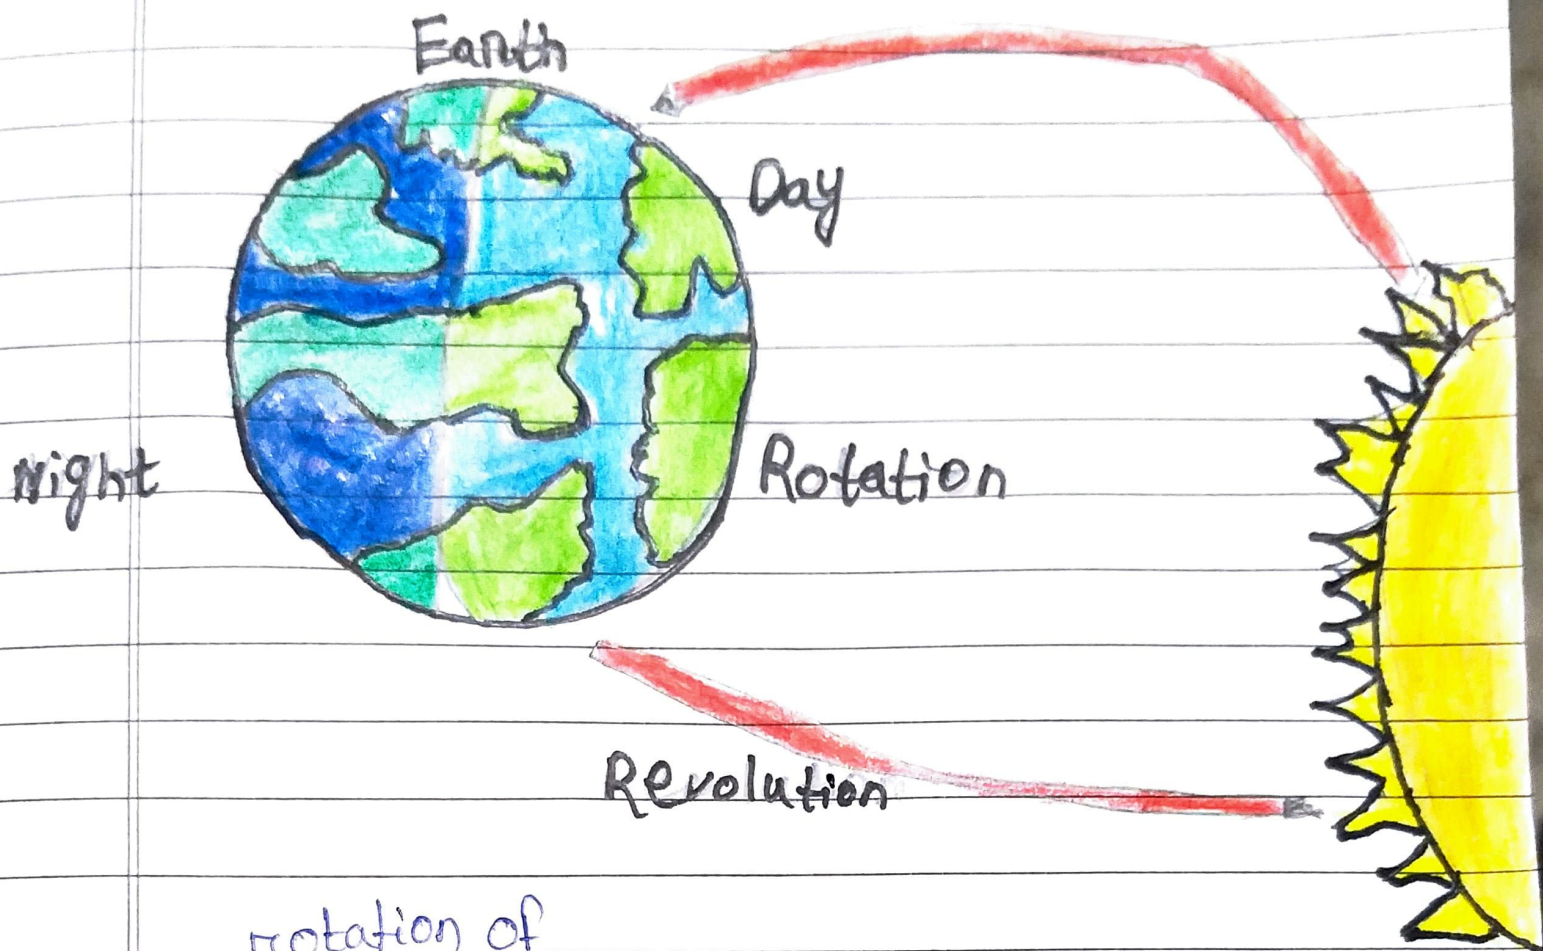 Earth
Day
Night
Rotation
Revolution
rotation of